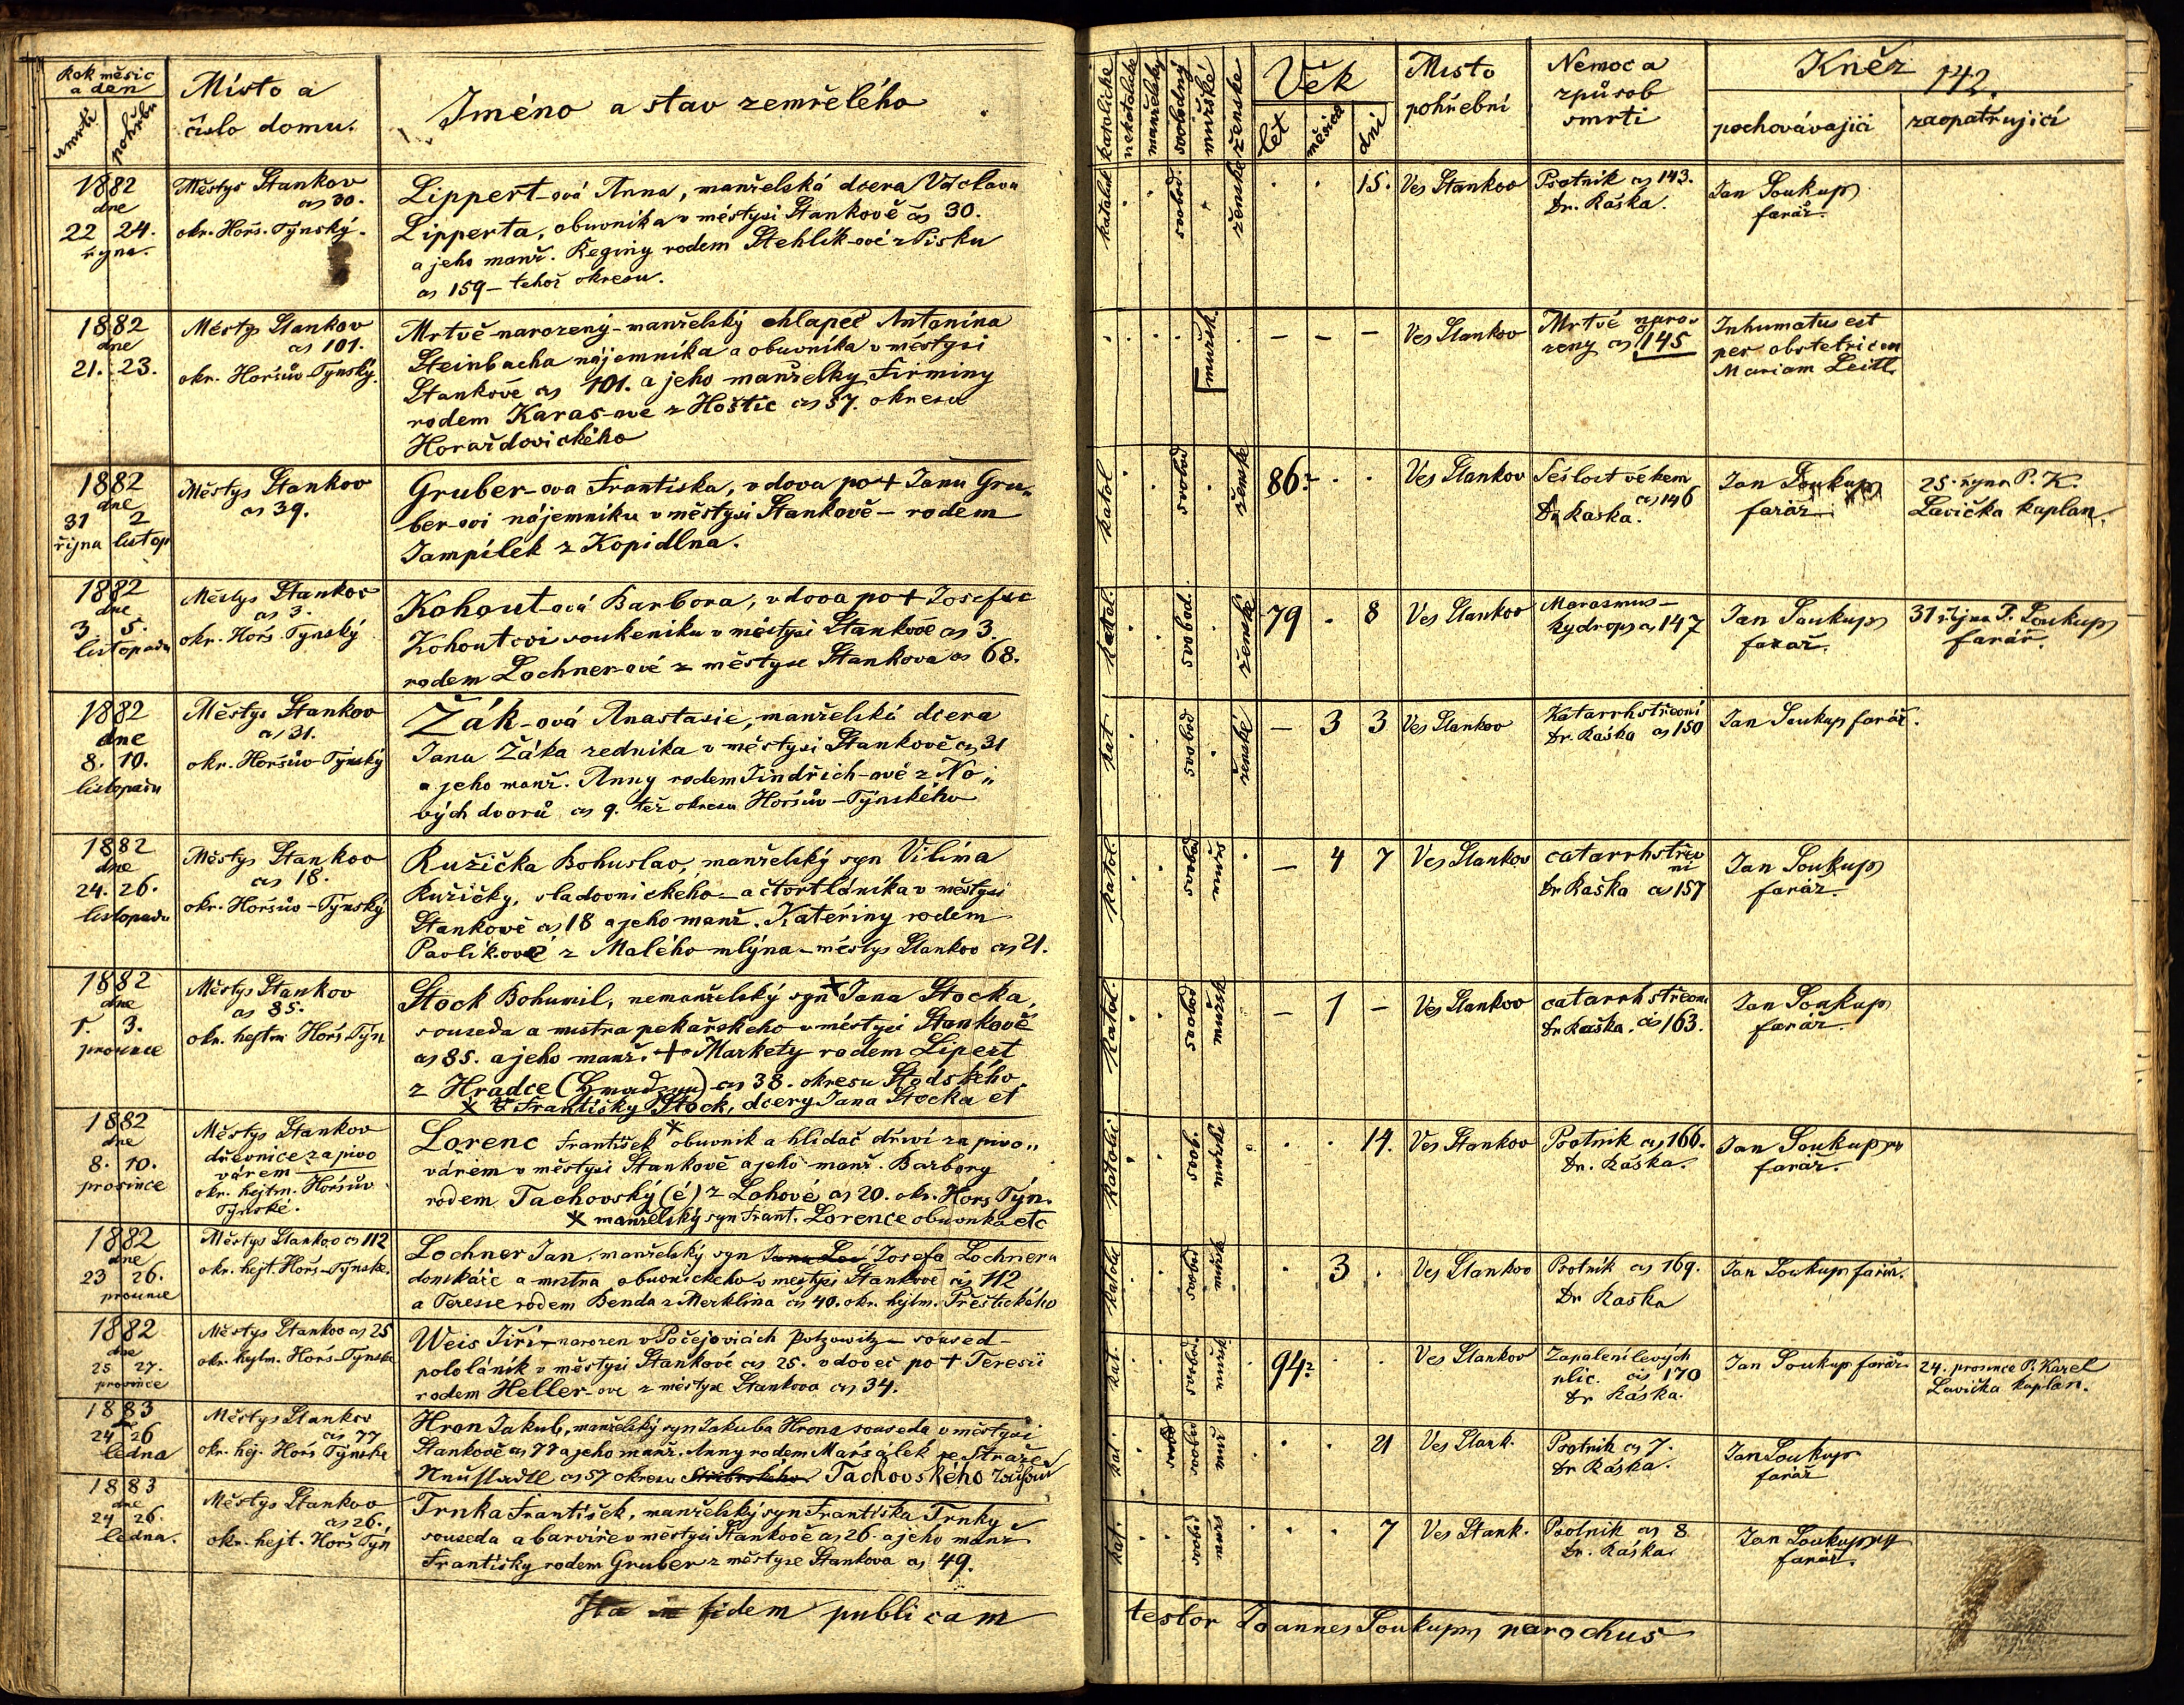 Rok měsíc
a den
úmrtí pohřbu
Místo a
číslo domu.
Jméno a stav zemřelého
katolické
nekatolické
manželský
svobodný
mužské
ženské
Věk
let
měsíců
dní
Místo
pohřební
Nemoc a
způsob
smrti
Kněz
142.
pochovávající
zaopatřující
1882
dne
22 24.
října.
Městys Stankov
čs 30.
okr. Horš. Týnský.
Lippert-ová Anna, manželská dcera Václava
Lipperta, obuvníka v městysi Stankově čs 30.
a jeho manž. Reginy rodem Stehlík-ové z Písku
čs 159 – tehož okresu.
katolick
svobod.
ženské
15.
Ves Stankov
Psotník čs 143.
Dr. Raška.
Jan Soukup
farář.
1882
dne
21. 23.
Městys Stankov
čs 101.
okr. Horšův-Týnský.
Mrtvě-narozený-manželský chlapeč Antonína
Steinbacha nájemníka a obuvníka v městysi
Stankově čs 101. a jeho manželky Firminy
rodem Karas-ové z Hoštic čs 57. okresu
Horažďovického
mužsk.
– – –
Ves Stankov
Mrtvě naro-
zený čs 145
Inhumatus est
per obstetricem
Mariam Leitl
1882
dne
31 2
října listop
Městys Stankov
čs 39.
Gruber-ova Frantiska, vdova po + Janu Gru„
ber-ovi nájemníku v městysi Stankově – rodem
Jampílek z Kopidlna.
katol
svobod
ženské
86?
Ves Stankov
Sešlost věkem
čs 146
Dr Raska.
Jan Soukup
farář
25. října P. K.
Lavička kaplan.
1882
dne
3 5.
listopadu
Městys Stankov
čs 3.
okr. Horš. Týnský
Kohout-ová Barbora, vdova po + Josefu
Kohoutovi soukeníku v městysi Stankově čs 3.
rodem Lochner-ové z městyse Stankova čs 68.
katol.
svobod.
ženské
79 . 8
Ves Stankov
Marasmus –
hydrops čs 147
Jan Soukup
farář.
31 října P. Soukup
farář.
1882
dne
8. 10.
listopadu
Městys Stankov
čs 31.
okr. Horšův-Týnský
Žák-ová Anastasie, manželská dcera
Jana Žáka zedníka v městysi Stankově čs 31
a jeho manž. Anny rodem Jindřich-ové z No„
vých dvorů čs 9. též okresu Horšův-Týnského
kat
svobod
ženské
– 3 3
Ves Stankov
Katarrh střevní
Dr. Raška čs 150
Jan Soukup farář.
1882
dne
24. 26.
listopadu
Městys Stankov
čs 18.
okr. Horšův-Týnský
Ružička Bohuslav, manželský syn Vilíma
Ružičky, sladovnického – a čtvrtláníka v městysi
Stankově čs 18 a jeho manž. Kateřiny rodem
Pavlíkové z Malého mlýna – městys Stankov čs 21.
katol.
svobod
mužsk
– 4 7
Ves Stankov
catarrh střev
ní
Dr Raška čs 157
Jan Soukup
farář
1882
dne
1. 3.
prosince
Městys Stankov
čs 85.
okr. hejtm Horš. Týn
Stock Bohumil, nemanželský syn × Jana Stocka,
souseda a mistra pekařského v městysi Stankově
čs 85. a jeho manž. + Markety rodem Lipert
z Hradce () čs 38. okresu Stodského.
× Františky Stock, dcery Jana Stocka et
katol.
svobod
mužsk
– 1 –
Ves Stankov
catarrh střevní
Dr Raška. čs 163.
Jan Soukup
farář
1882
dne
8. 10.
prosince
Městys Stankov
dřevnice za pivo
várem
okr. hejtm. Horšův
Týnské.
Lorenc František × obuvník a hlídač dříví za pivo„
várem v městysi Stankově a jeho manž. Barbory
rodem Tachovský (é) z Lohové čs 20. okr. Horš Týn.
× manželský syn Frant. Lorence obuvníka etc
katolic
svob.
mužské
14.
Ves Stankov
Psotník čs 166.
Dr. Ráška.
Jan Soukup
farář.
1882
dne
23 26.
prosince
Městys Stankov čs 112
okr. hejt. Horš-Týnské.
Lochner Jan, manželský syn Josefa Lochnera
domkáře a mistra obuvnického v městysi Stankově čs 112
a Teresie rodem Benda z Merklína čs 40. okr. hejtm. Přeštického
katolic
svobod
mužsk
3
Ves Stankov
Psotník čs 169.
Dr Raška
Jan Soukup farář.
1882
dne
25 27.
prosince
Městys Stankov čs 25
okr. hejtm. Horš-Týnské
Weis Jiří – narozen v Počejovicích Potzowitz – soused –
pololáník v městysi Stankově čs 25. vdovec po + Teresii
rodem Heller-ové z městyse Stankova čs 34.
kat.
svobod.
mužsk
94?
Ves Stankov
Zapálení levých
plic. čs 170
Dr Ráska.
Jan Soukup farář
24. prosince P. Karel
Lavička kaplan.
1883
24 26
ledna
Městys Stankov
čs 77
okr. hej. Horš Týnské
Hron Jakub, manželský syn Jakuba Hrona souseda v městysi
Stankově čs 77 a jeho manž. Anny rodem Maršálek ze Stráže
Neustadtl čs 57 okresu Stříbrského Tachovského
kat.
svobod
muž
21
Ves Stank.
Psotník čs 7.
Dr Ráška.
Jan Soukup
farář
1883
dne
24 26.
ledna.
Městys Stankov
čs 26.
okr. hejt. Horš Týn
Trnka František, manželský syn Františka Trnky
souseda a barvíře v městysi Stankově čs 26. a jeho manž
Františky rodem Gruber z městyse Stankova čs 49.
kat.
svobod
7
Ves Stank.
Psotník čs 8
Dr. Ráška
Jan Soukup
farář.
Ita in fidem publicam
testor Joannes Soukup parochus